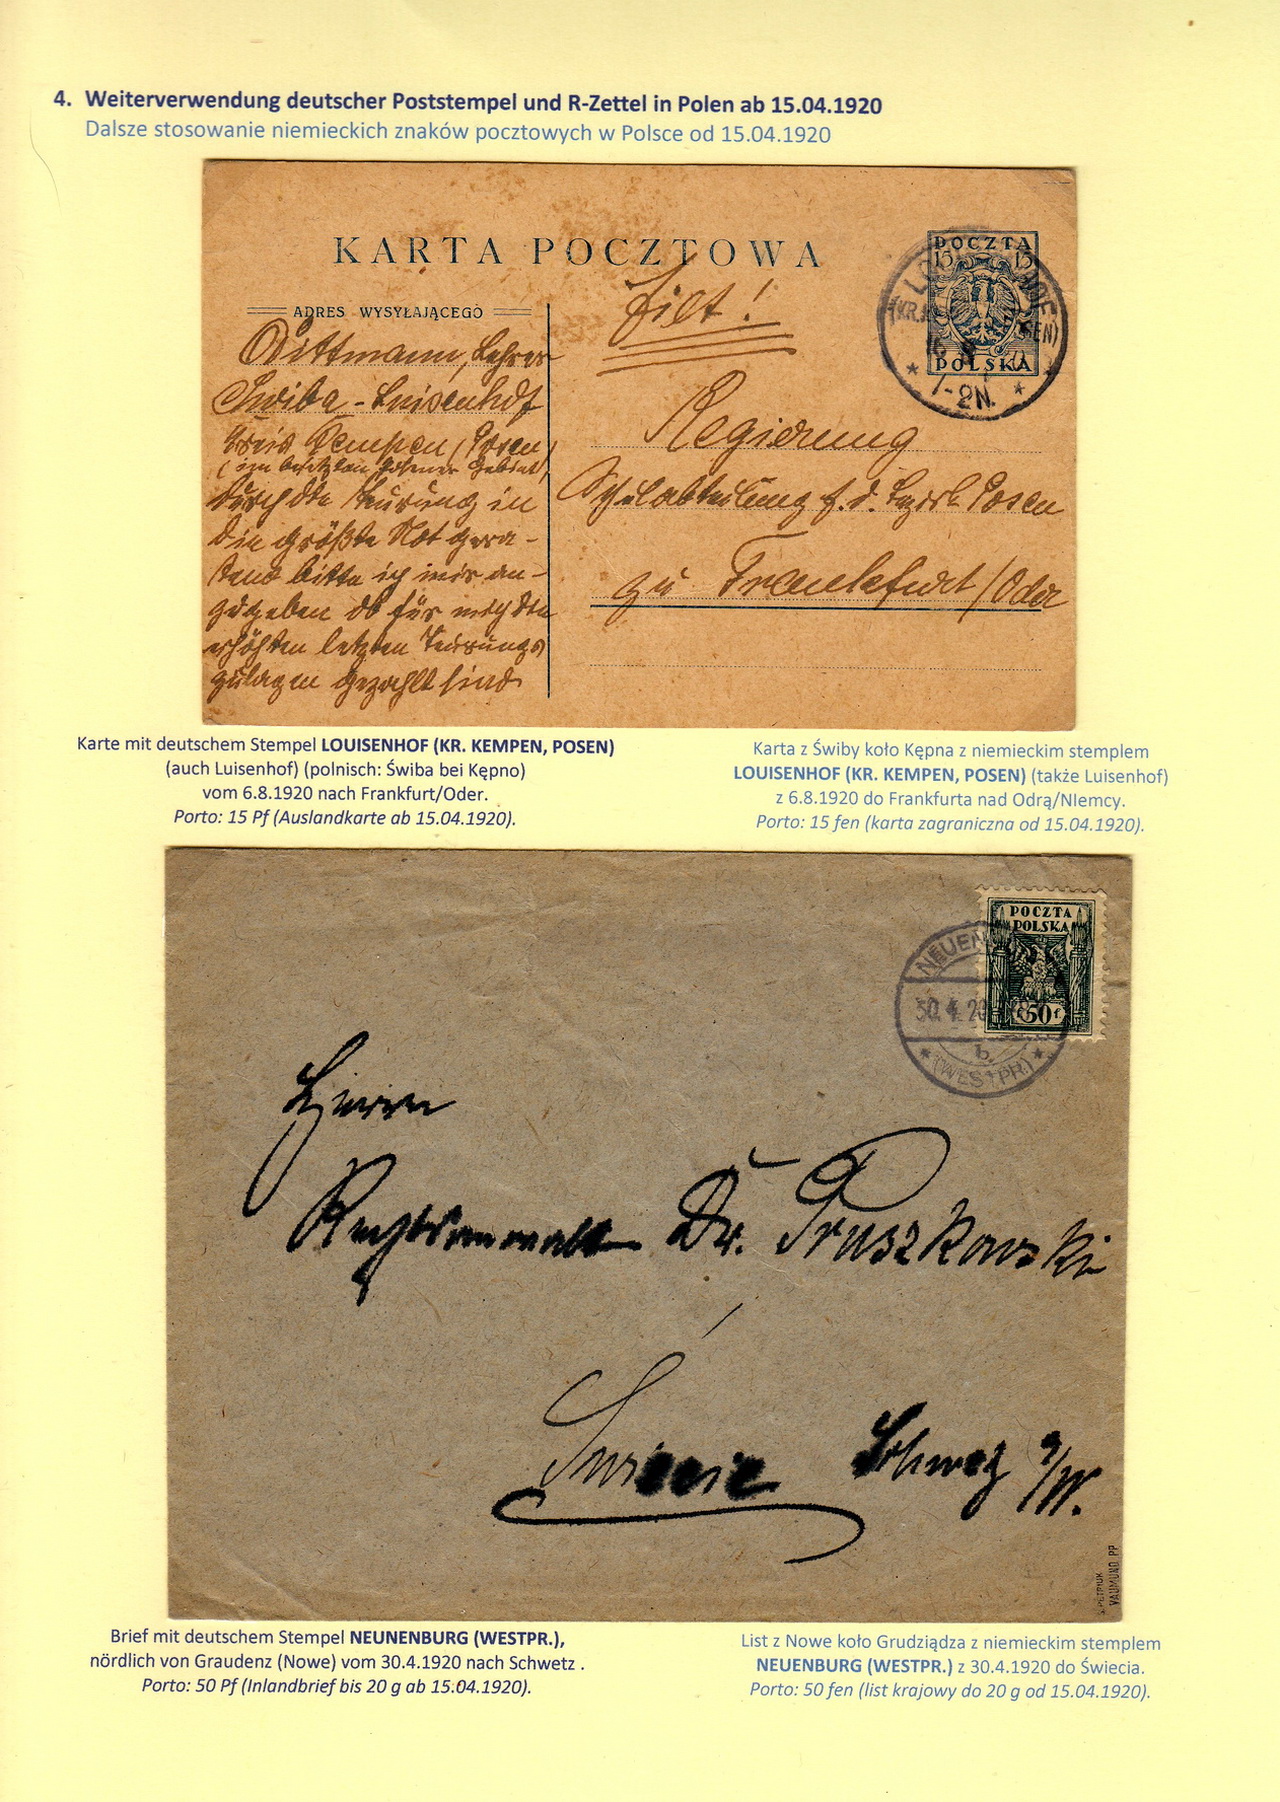 4. Weiterverwendung deutscher Poststempel und R-Zettel in Polen ab 15.04.1920
Dalsze stosowanie niemieckich znaków pocztowych w Polsce od 15.04.1920
KARTA POCZTOWA
POCZTA
15 15
POLSKA
1-2N.
ADRES WYSYŁAJĄCEGO
Eilt!
Dittmann, Lehrer
Swiba-Luisenhof
Kreis Kempen (Posen)
(im besetzten Posener Gebiet)
durch die Teurung in
die größte Not gera-
tend bitte ich mir an-
zugeben ob für mich die
erhöhten letzten Teurungs
zulagen gezahlt sind
Regierung
Schulabteilung f. d. Bezirk Posen
zu Frankfurt/Oder
Karte mit deutschem Stempel LOUISENHOF (KR. KEMPEN, POSEN)
(auch Luisenhof) (polnisch: Świba bei Kępno)
vom 6.8.1920 nach Frankfurt/Oder.
Porto: 15 Pf (Auslandkarte ab 15.04.1920).
Karta z Świby koło Kępna z niemieckim stemplem
LOUISENHOF (KR. KEMPEN, POSEN) (także Luisenhof)
z 6.8.1920 do Frankfurta nad Odrą/NIemcy.
Porto: 15 fen (karta zagraniczna od 15.04.1920).
POCZTA
POLSKA
50 f
30.4.20
b
(WESTPR.)
Herrn
Rechtsanwalt Dr. Pruszkowski
Swiecie Schwetz a/W.
VAUMUND PP
Brief mit deutschem Stempel NEUNENBURG (WESTPR.),
nördlich von Graudenz (Nowe) vom 30.4.1920 nach Schwetz .
Porto: 50 Pf (Inlandbrief bis 20 g ab 15.04.1920).
List z Nowe koło Grudziądza z niemieckim stemplem
NEUENBURG (WESTPR.) z 30.4.1920 do Świecia.
Porto: 50 fen (list krajowy do 20 g od 15.04.1920).